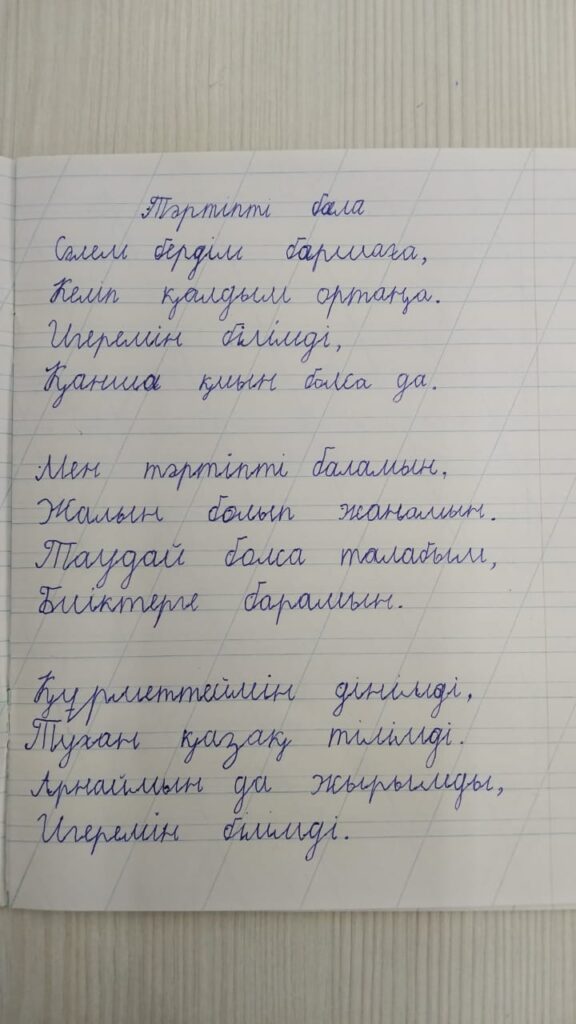 Тәртіпті бала
Сәлем бердім баршаға,
Келіп қалдым ортаңа.
Игеремін білімді,
Қанша қиын болса да.
Мен тәртіпті баламын,
Жалын болып жанамын.
Таудай болса талабым,
Биіктерге барамын.
Құрметтеймін дінімді,
Тұхан қазақ тілімді.
Арнаймын да жырымды,
Игеремін білімді.